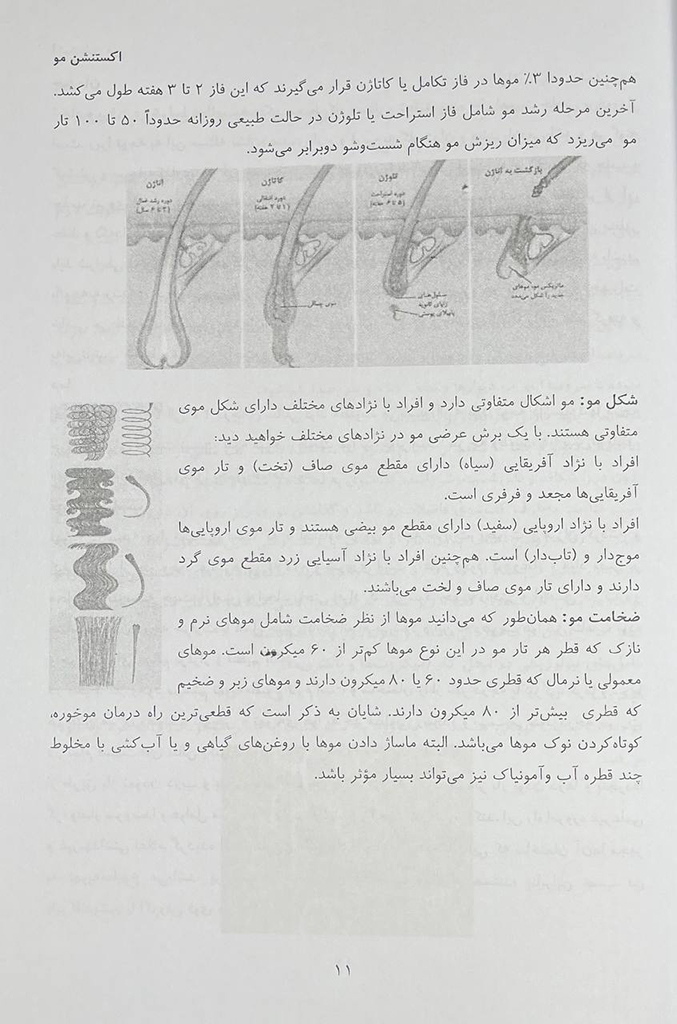 اکستنشن مو
هم‌چنین حدودا ۳٪ موها در فاز تکامل یا کاتاژن قرار می‌گیرند که این فاز ۲ تا ۳ هفته طول می‌کشد.
آخرین مرحله رشد مو شامل فاز استراحت یا تلوژن در حالت طبیعی روزانه حدوداً ۵۰ تا ۱۰۰ تار
مو می‌ریزد که میزان ریزش مو هنگام شست‌وشو دوبرابر می‌شود.
بازگشت به آناژن
ماتریکس مو، موهای
جدید را شکل می‌دهد
تلوژن
دوره استراحت
(۵ تا ۶ هفته)
سلول‌های
زایای ثانویه
پاپیلای پوستی
کاتاژن
دوره انتقالی
(۱ تا ۲ هفته)
موی چماقی
آناژن
دوره رشد فعال
شکل مو: مو اشکال متفاوتی دارد و افراد با نژادهای مختلف دارای شکل موی
متفاوتی هستند. با یک برش عرضی مو در نژادهای مختلف خواهید دید:
افراد با نژاد آفریقایی (سیاه) دارای مقطع موی صاف (تخت) و تار موی
آفریقایی‌ها مجعد و فرفری است.
افراد با نژاد اروپایی (سفید) دارای مقطع مو بیضی هستند و تار موی اروپایی‌ها
موج‌دار و (تاب‌دار) است. هم‌چنین افراد با نژاد آسیایی زرد مقطع موی گرد
دارند و دارای تار موی صاف و لخت می‌باشند.
ضخامت مو: همان‌طور که می‌دانید موها از نظر ضخامت شامل موهای نرم و
نازک که قطر هر تار مو در این نوع موها کم‌تر از ۶۰ میکرون است. موهای
معمولی یا نرمال که قطری حدود ۶۰ یا ۸۰ میکرون دارند و موهای زبر و ضخیم
که قطری بیش‌تر از ۸۰ میکرون دارند. شایان به ذکر است که قطعی‌ترین راه درمان موخوره،
کوتاه‌کردن نوک موها می‌باشد. البته ماساژ دادن موها با روغن‌های گیاهی و یا آب‌کشی با مخلوط
چند قطره آب وآمونیاک نیز می‌تواند بسیار مؤثر باشد.
۱۱